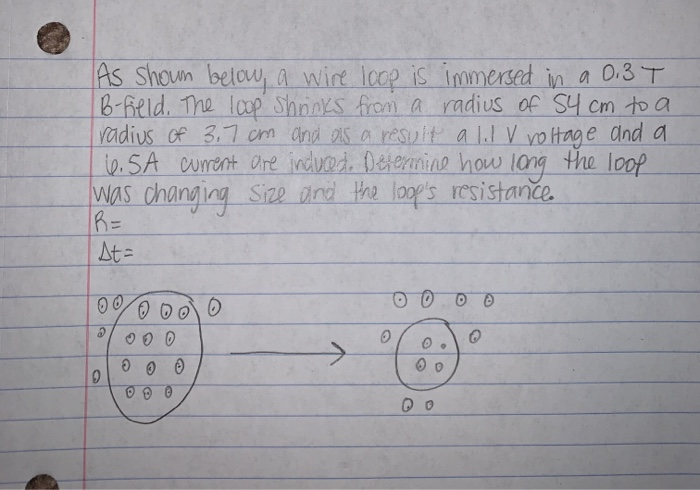 As shown below, a wire loop is immersed in a 0.3 T
B-field. The loop shrinks from a radius of 54 cm to a
radius of 3.7 cm and as a result a 1.1 V voltage and a
6.5A current are induced. Determine how long the loop
was changing size and the loop's resistance.
R=
Δt=